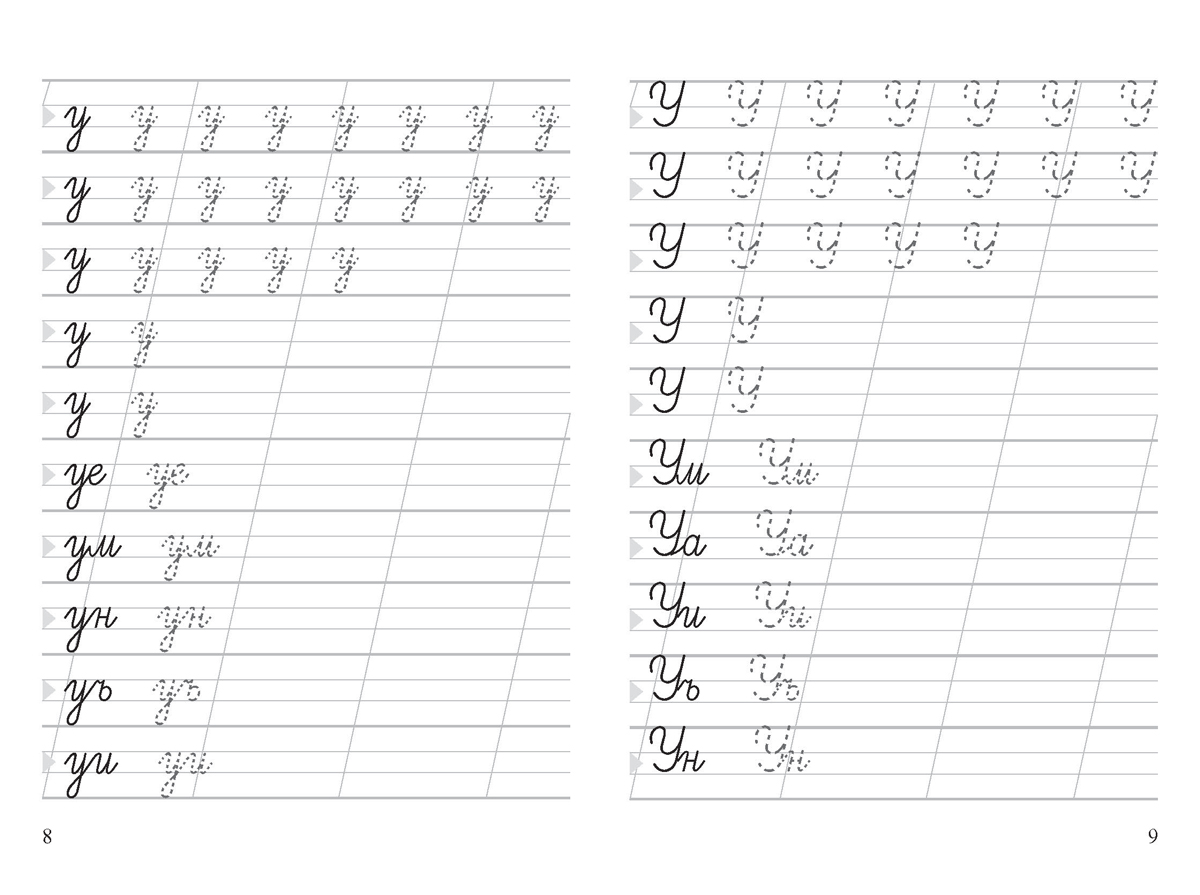 у у у у у у у у
у у у у у у у у
у у у у у
у у
у у
уе уе
ум ум
ун ун
уъ уъ
уи уи
8
У У У У У У У
У У У У У У У
У У У У У
У У
У У
Ум Ум
Уа Уа
Уи Уи
Уъ Уъ
Ун Ун
9